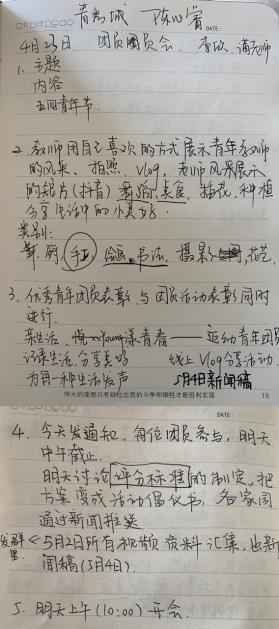 青禹城 陈心睿
DATE:
4月23日 团员团员会
1. 主题
内容
五四青年节
2. 教师用自己喜欢的方式展示青年教师
的风采、拍照、Vlog, 老师风采展示、
的短片(抖音) 美食、插花、种植
分享生活中的小美好.
类别:
手工 绘画、书法, 摄影 花艺.
3. 优秀青年团员表彰, 与团员活动表彰同时
进行.
记录生活, 分享美好 线上Vlog分享活动
为每一种生活发声 5月4日新闻稿
伟大的理想只有经过忘我的斗争和牺牲才能胜利实现
15
DATE:
4. 今天发通知, 每位团员参与, 明天
中午截止.
明天讨论评分标准的制定, 把
方案变成活动倡议书, 各家园
通过新闻推送.
发群里 5月2日所有视频资料汇集, 出新
闻稿(5月4日).
5. 明天上午(10:00)开会.